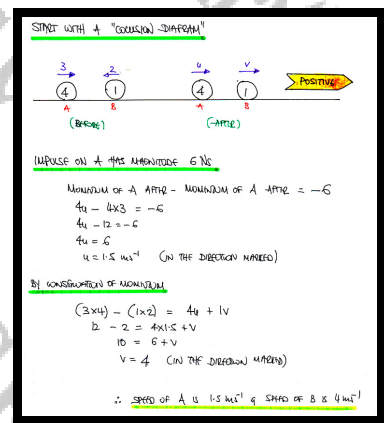 START WITH A "COLLISION DIAGRAM"
3 2 u v
4 1 4 1 POSITIVE
A B A B
(BEFORE) (AFTER)
IMPULSE ON A HAS MAGNITUDE 6 Ns
MOMENTUM OF A AFTER - MOMENTUM OF A AFTER = -6
4u - 4×3 = -6
4u - 12 = -6
4u = 6
u = 1.5 ms⁻¹ (IN THE DIRECTION MARKED)
BY CONSERVATION OF MOMENTUM
(3×4) - (1×2) = 4u + 1v
12 - 2 = 4×1.5 + v
10 = 6 + v
v = 4 (IN THE DIRECTION MARKED)
∴ SPEED OF A IS 1.5 ms⁻¹ & SPEED OF B IS 4 ms⁻¹